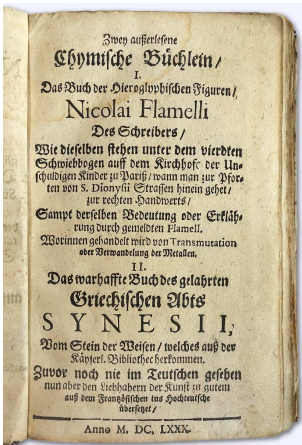 Zwey außerlesene
Chymische Büchlein/
I.
Das Buch der Hieroglyphischen Figuren/
Nicolai Flamelli
Des Schreibers/
Wie dieselben stehen unter dem vierdten
Schwiebbogen auff dem Kirchhofe der Un-
schuldigen Kinder zu Pariß/ wann man zur Pfor-
ten von S. Dionysii Strassen hinein gehet/
zur rechten Handwerts/
Sampt derselben Bedeutung oder Erkläh-
rung durch gemeldten Flamell.
Worinnen gehandelt wird von Transmutation
oder Verwandelung der Metallen.
II.
Das warhaffte Buch des gelahrten
Griechischen Abts
SYNESII,
Vom Stein der Weisen/ welches auß der
Käyserl. Bibliothec herkommen.
Zuvor noch nie im Teutschen gesehen
nun aber den Liebhabern der Kunst zu gutem
auß dem Französischen ins Hochteutsche
übersetzet/
Anno M. DC. LXXX.